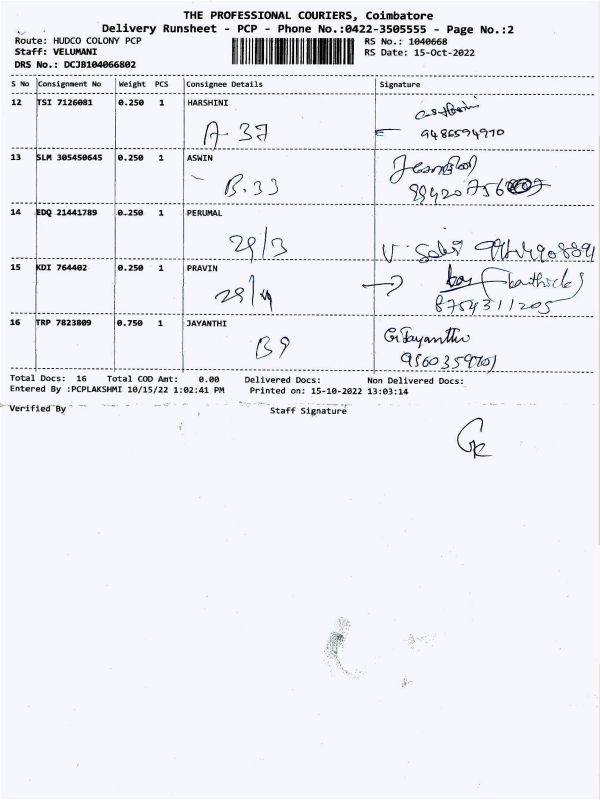 THE PROFESSIONAL COURIERS, Coimbatore
Delivery Runsheet - PCP - Phone No.:0422-3505555 - Page No.:2
Route: HUDCO COLONY PCP RS No.: 1040668
Staff: VELUMANI RS Date: 15-Oct-2022
DRS No.: DCJB104066802
S No Consignment No Weight PCS Consignee Details Signature
12 TSI 7126081 0.250 1 HARSHINI
A-37 9486594970
13 SLM 305450645 0.250 1 ASWIN
B.33
14 EDQ 21441789 0.250 1 PERUMAL
29/3
15 KDI 764402 0.250 1 PRAVIN
8754311205
16 TRP 7823809 0.750 1 JAYANTHI G. Jayanthi
B9
Total Docs: 16 Total COD Amt: 0.00 Delivered Docs: Non Delivered Docs:
Entered By :PCPLAKSHMI 10/15/22 1:02:41 PM Printed on: 15-10-2022 13:03:14
Verified By Staff Signature